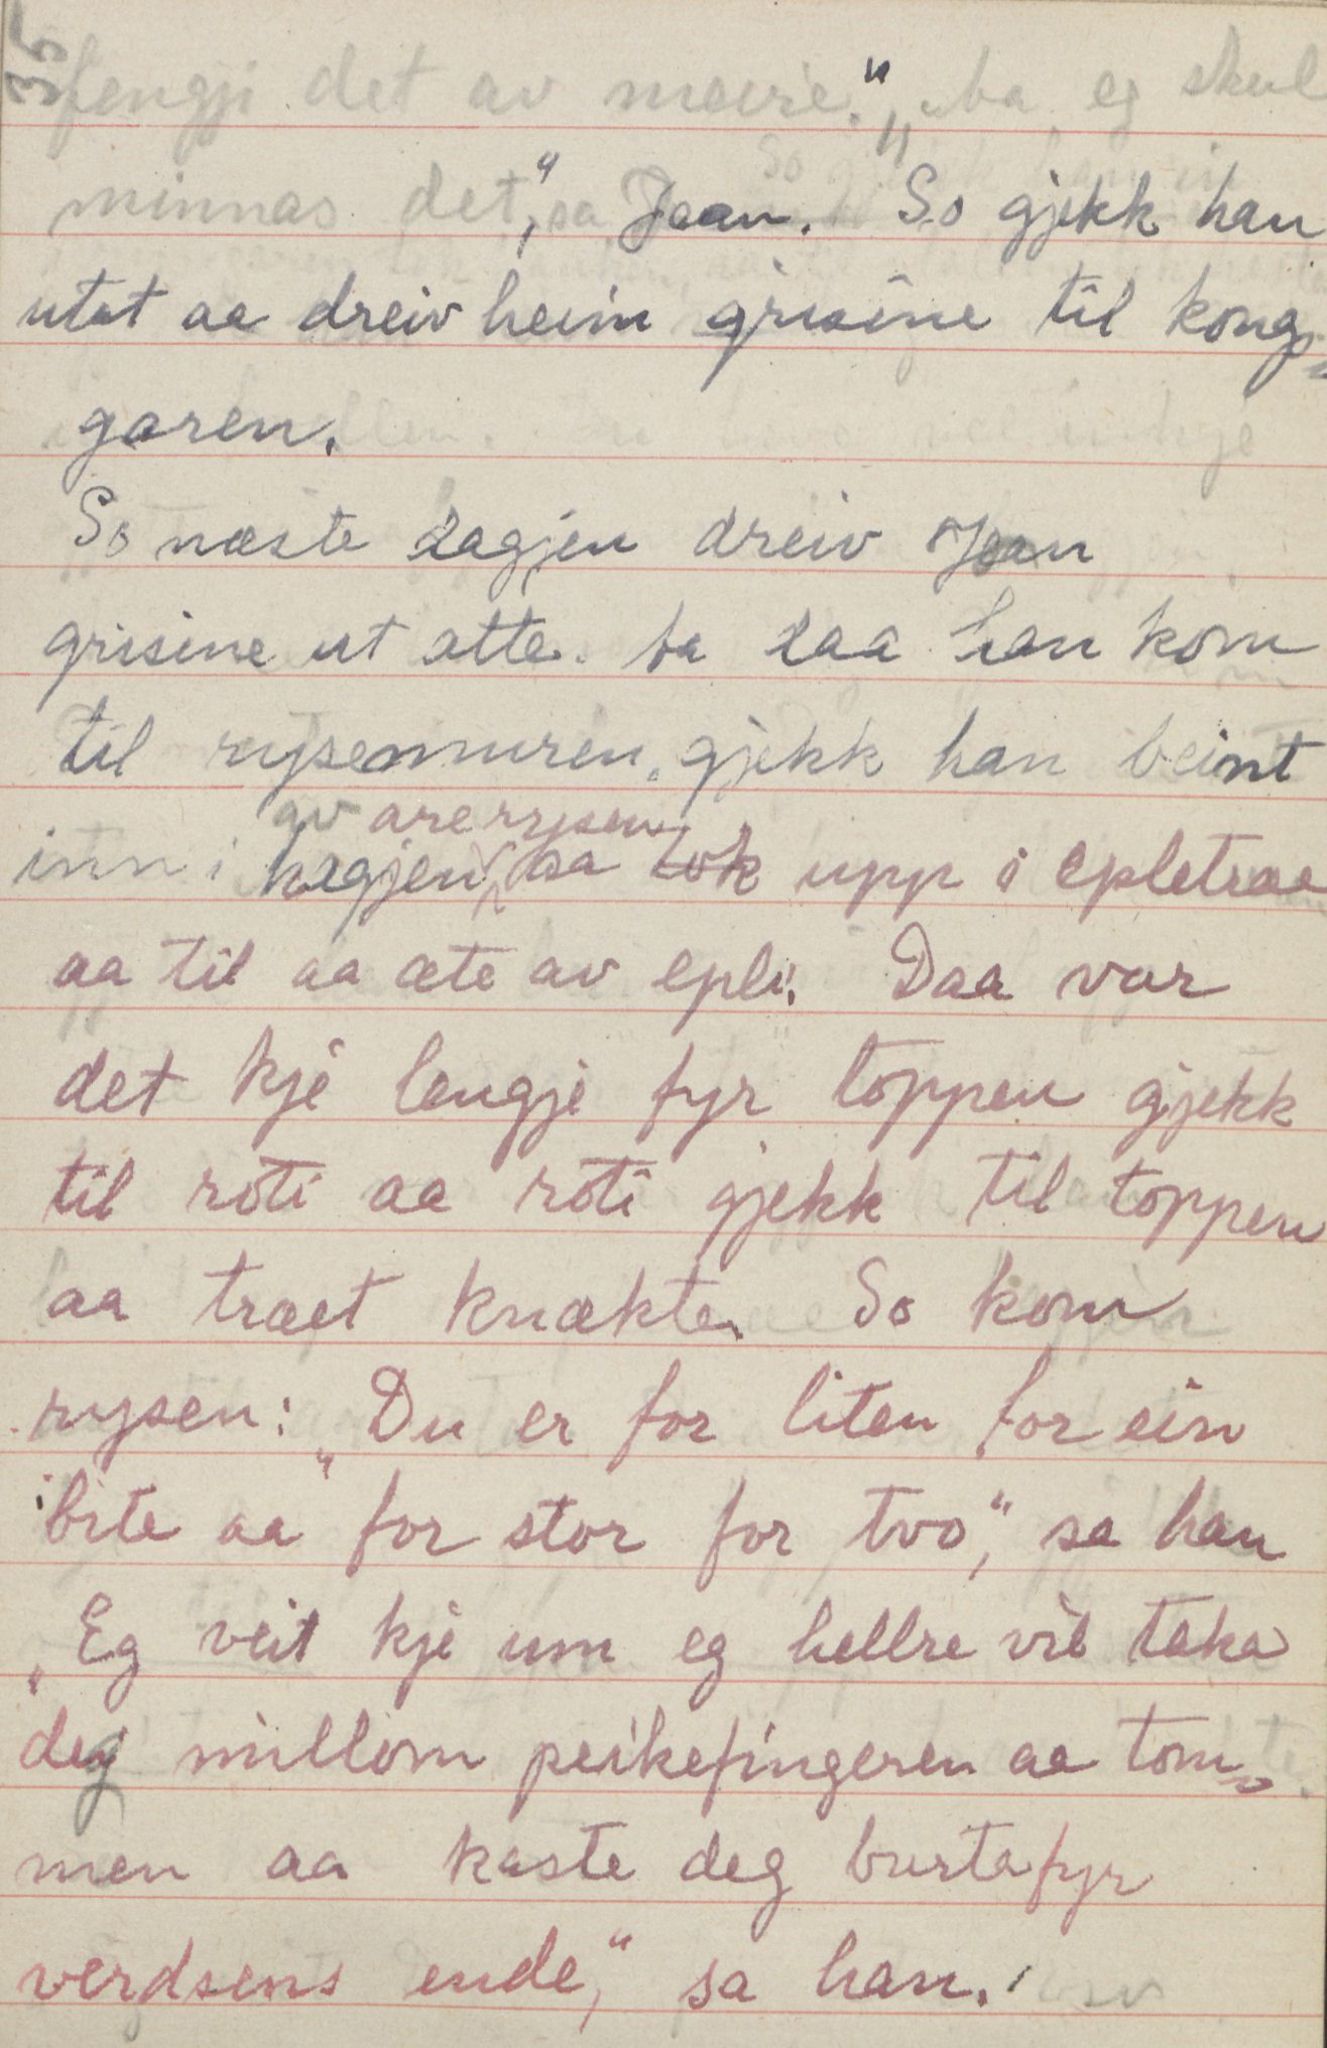 35
fengji det av meire." "Ja, eg skul
minnas det," sa Jean. So gjekk han
utat aa dreiv heim grisine til kongs-
garen.
So næste dagjen dreiv Jean
grisine ut atte. Ja daa han kom
til rysemuren, gjekk han beint
av are rysen
inn i hagjen, aa tok upp i epletræe
aa til aa æte av epli. Daa var
det kje lengje fyr toppen gjekk
til roti aa roti gjekk til toppen
aa træet knækte. So kom
rysen: "Du er for liten for ein
bite aa for stor for tvo," sa han
"Eg veit kje um eg hellre vil taka
deg millom peikefingeren aa tom-
men aa kaste deg burtafyr
verdsens ende," sa han.